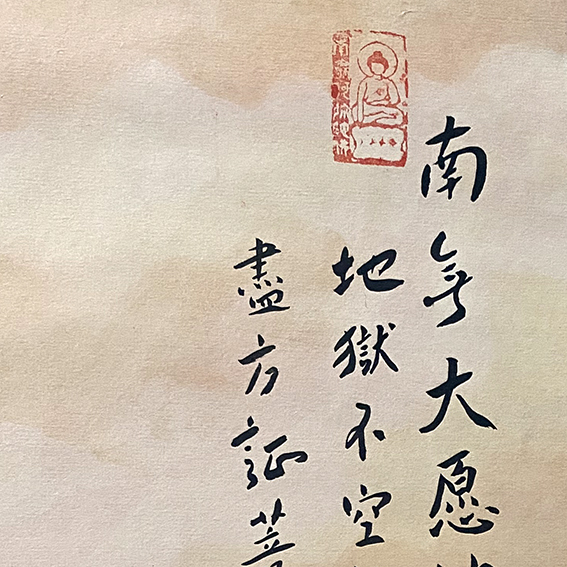 南無大愿
地獄不空
盡方証菩